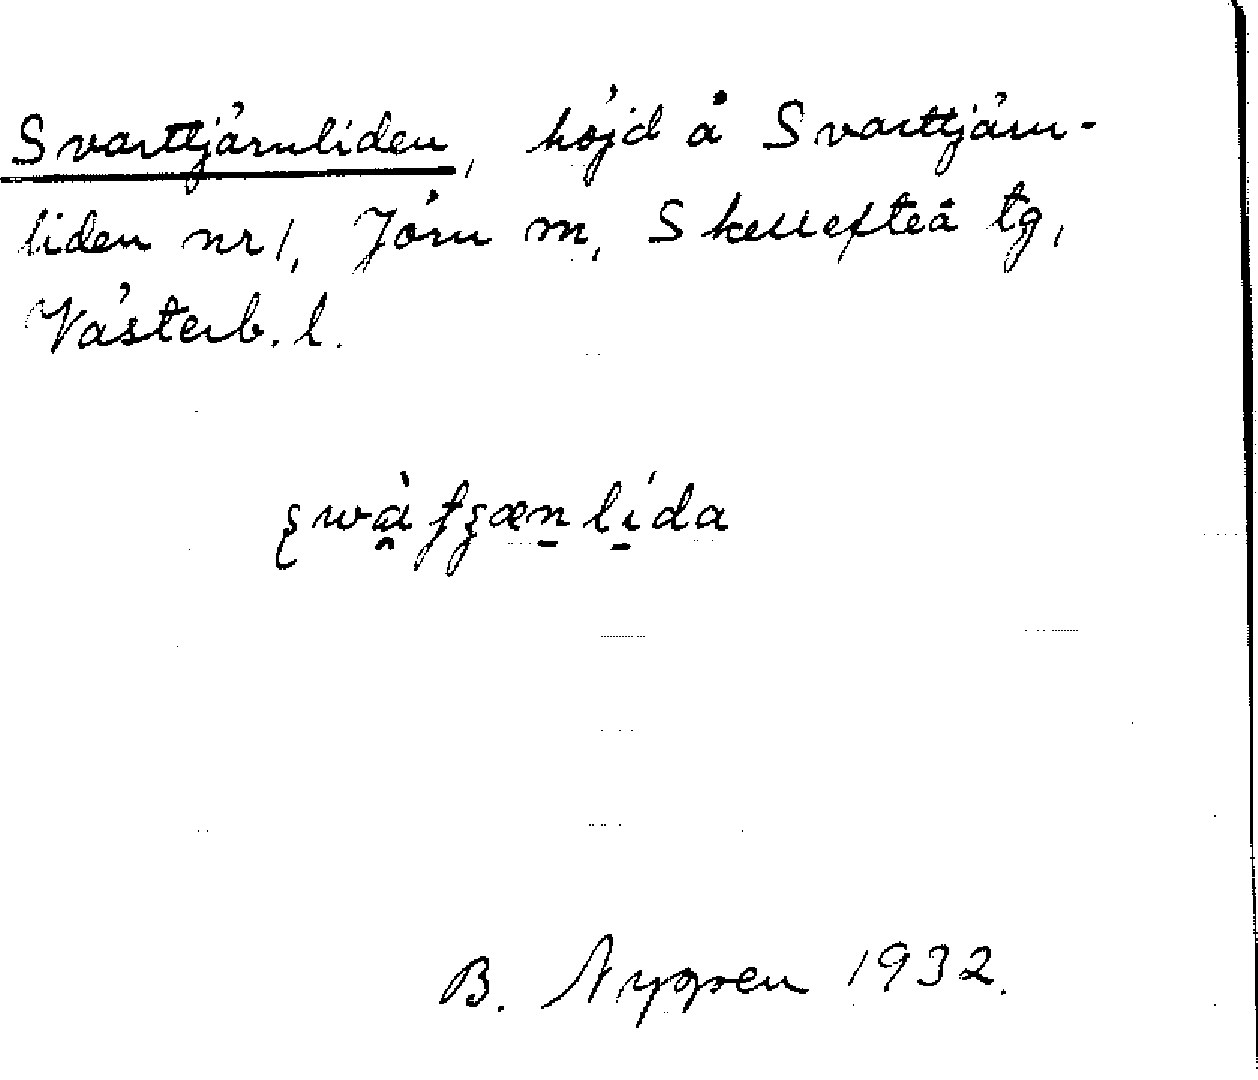 Svarttjärnliden, höjd å Svarttjärn-
liden nr 1, Jörn m, Skellefteå tg,
Västerb. l.
B. Nygren 1932.